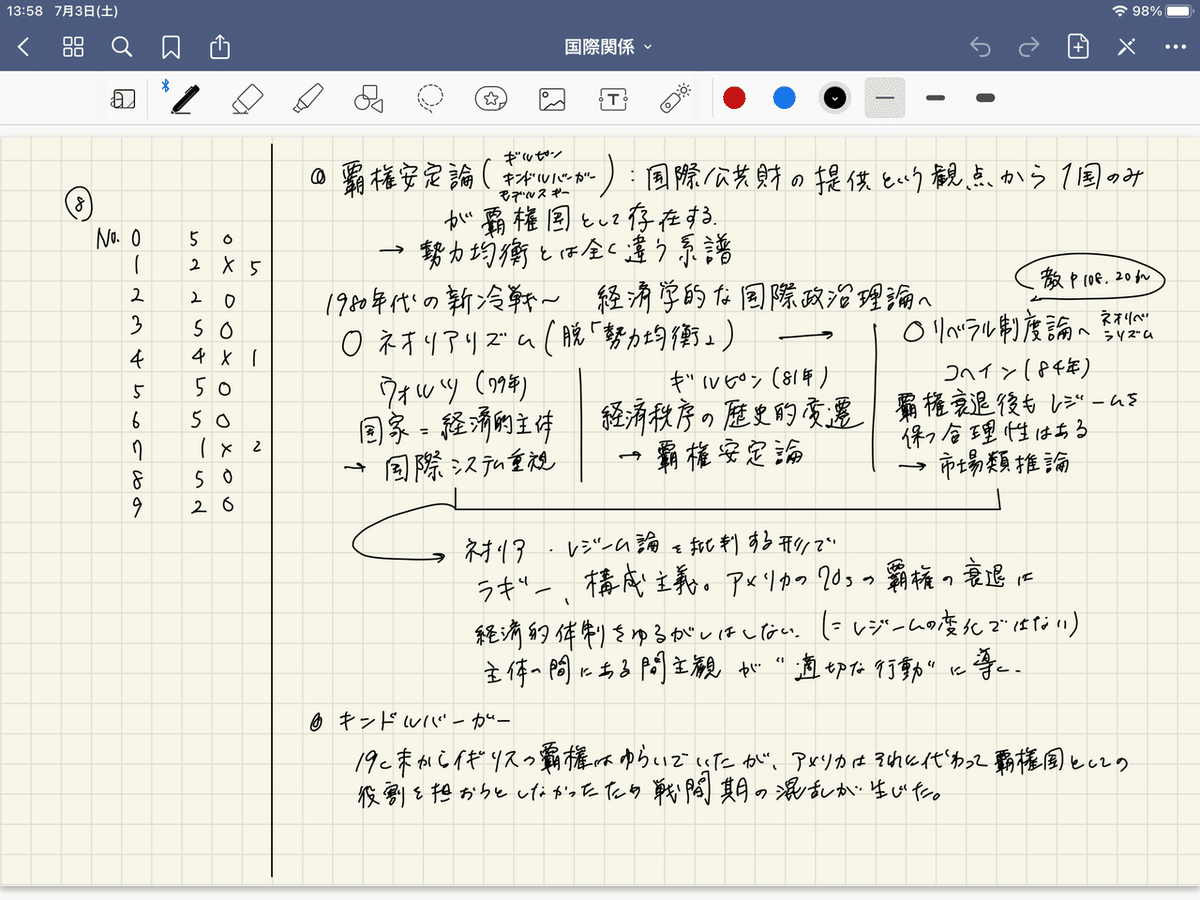 13:58 7月3日(土)
98%
国際関係
T
⑧
No. 0 5 0
1 2 × 5
2 2 0
3 5 0
4 4 × 1
5 5 0
6 5 0
7 1 × 2
8 5 0
9 2 0
覇権安定論(ギルピン
キンドルバーガー
モデルスキー):国際公共財の提供という観点から1国のみ
が覇権国として存在する.
→ 勢力均衡とは全く違う系譜
1980年代の新冷戦〜 経済学的な国際政治理論へ
教 P108.20
○ ネオリアリズム(脱「勢力均衡」) →
○ リベラル制度論へ ネオリベ
ラリズム
ウォルツ(79年)
国家=経済的主体
→ 国際システム重視
ギルピン(81年)
経済秩序の歴史的変遷
→ 覇権安定論
コヘイン(84年)
覇権衰退後もレジームを
保つ合理性はある
→ 市場類推論
ネオリア・レジーム論を批判する形で
ラギー、構成主義。アメリカの70sの覇権の衰退は
経済的体制をゆるがしはしない.(=レジームの変化ではない)
主体の間にある間主観が"適切な行動"に導く.
キンドルバーガー
19c末からイギリスの覇権はゆらいでいたが、アメリカはそれに代わって覇権国としての
役割を担おうとしなかったため戦間期の混乱が生じた。